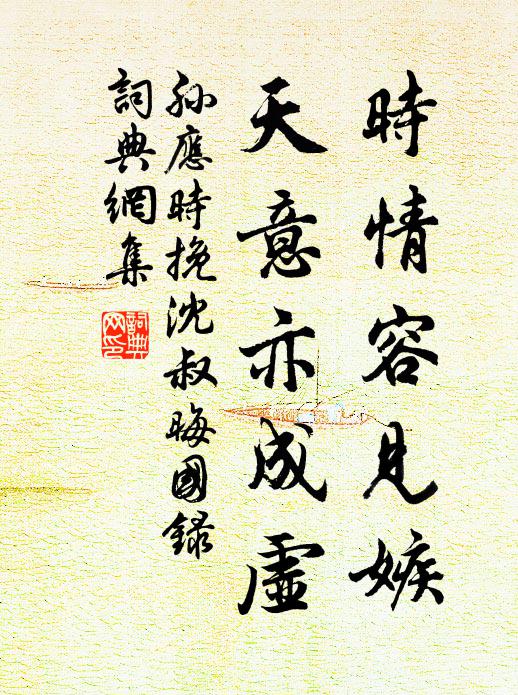 時情容見嫉
天意亦成虛
孫應時挽沈叔晦國錄
詞典網集
詞典網印